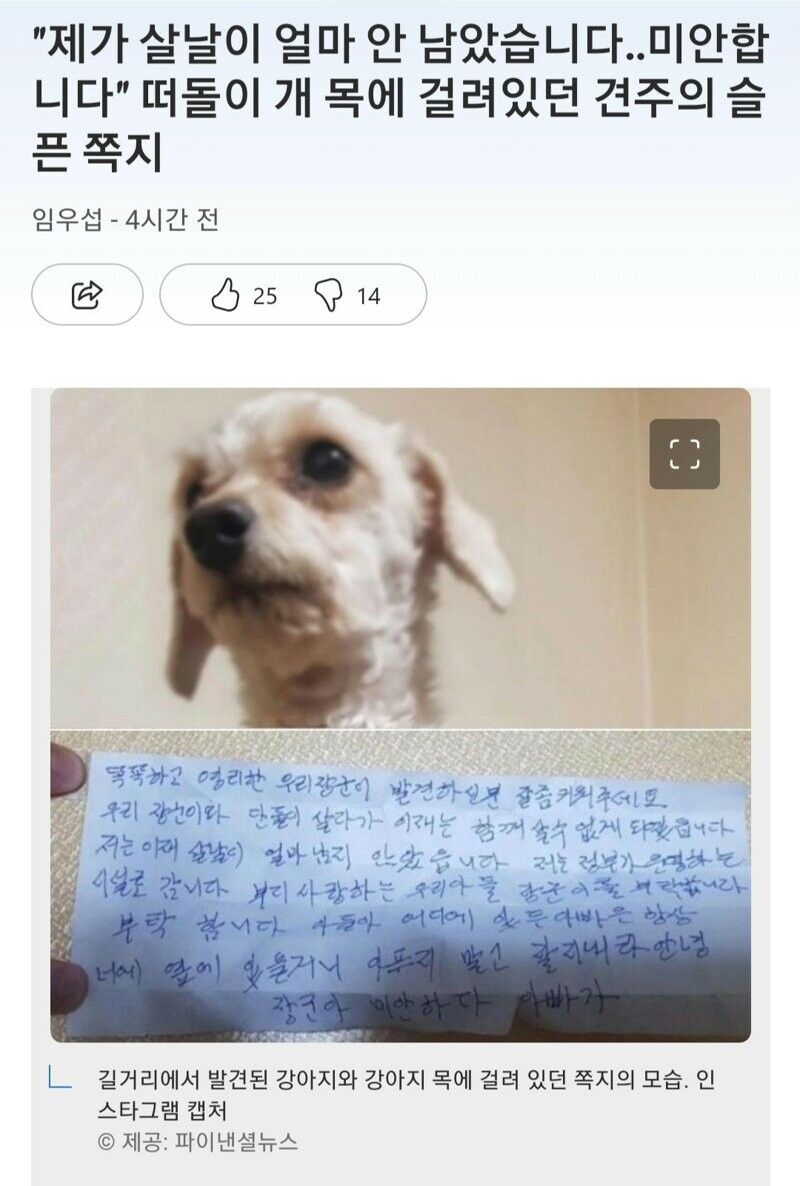 "제가 살날이 얼마 안 남았습니다..미안합
니다" 떠돌이 개 목에 걸려있던 견주의 슬
픈 쪽지
임우섭 - 4시간 전
25 14
똑똑하고 영리한 우리장군이 발견하실분 잘좀키워주세요
우리 장군이와 단둘이 살다가 이제는 함께 살수 없게 되었습니다
저는 이제 살날이 얼마남지 않았습니다 저는 정부가 운영하는
시설로 갑니다 부디 사랑하는 우리아들 장군이를 부탁합니다
부탁 합니다 아들아 어디에 있든 아빠은 항상
너에 옆에 있을거니 아푸지 말고 잘지내라 안녕
장군아 미안하다 아빠가
길거리에서 발견된 강아지와 강아지 목에 걸려 있던 쪽지의 모습. 인
스타그램 캡처
© 제공: 파이낸셜뉴스